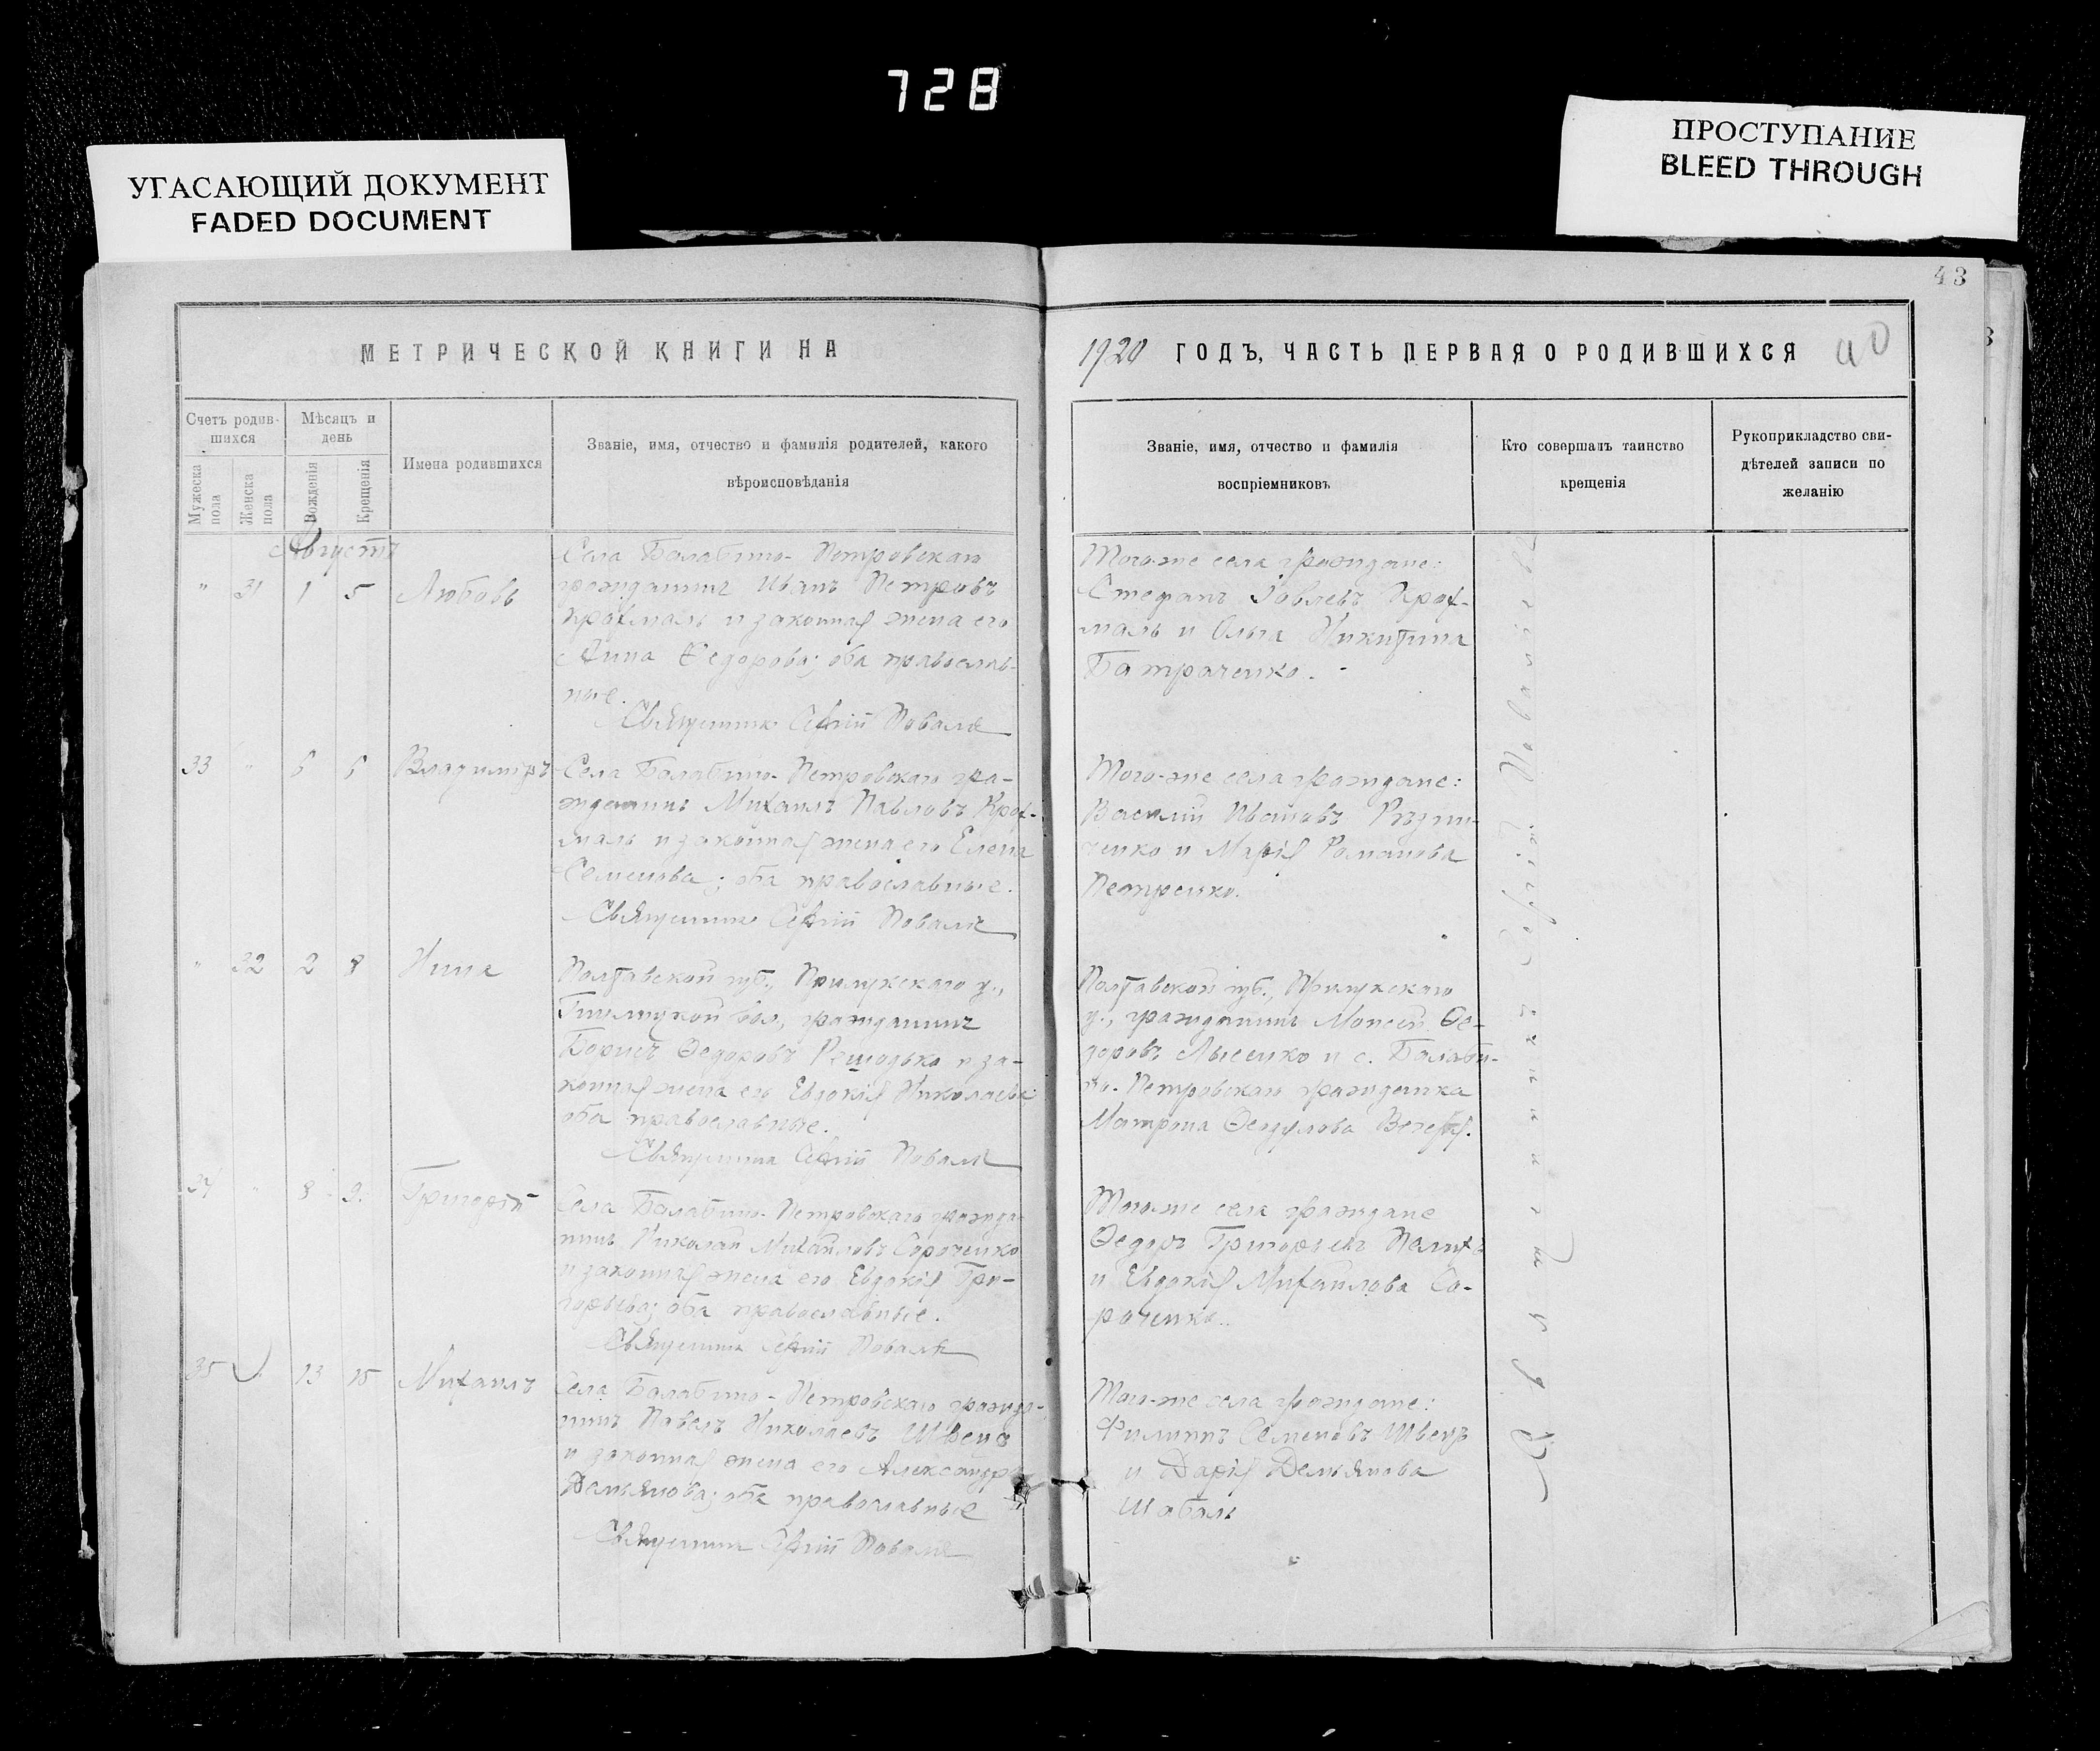 728
УГАСАЮЩИЙ ДОКУМЕНТ
FADED DOCUMENT
ПРОСТУПАНИЕ
BLEED THROUGH
43
МЕТРИЧЕСКОЙ КНИГИ НА
1920 ГОДЪ, ЧАСТЬ ПЕРВАЯ О РОДИВШИХСЯ
40
Счетъ родив-
шихся
Мужеска
пола
Женска
пола
Мѣсяцъ и
день
Рожденія
Крещенія
Имена родившихся
Званіе, имя, отчество и фамилія родителей, какого
вѣроисповѣданія
Званіе, имя, отчество и фамилія
воспріемниковъ
Кто совершалъ таинство
крещенія
Рукоприкладство сви-
дѣтелей записи по
желанію
Августъ
" 31 1 5 Любовь
Села Балабино-Петровскаго
гражданинъ Иванъ Петровъ
Крохмаль и законная жена его
Анна Федорова; оба православ-
ные.
Священник Сергій Поваля
Того-же села граждане:
Стефанъ Іовлевъ Крох-
маль и Ольга Никитина
Батраченко.
33 " 5 5 Владиміръ
Села Балабино-Петровскаго гра-
жданинъ Михаилъ Павловъ Крох-
маль и законная жена его Елена
Семенова; оба православные.
Священник Сергій Поваля
Того-же села граждане:
Василій Ивановъ Рѣзни-
ченко и Марія Романова
Петренко.
" 32 2 8 Нина
Полтавской губ., Прилукскаго у.,
вол., гражданинъ
Борисъ Федоровъ и за-
конная жена его Евдокія Николаева
оба православные.
Священник Сергій Поваля
Полтавской губ., Прилукскаго
у., гражданинъ Моисей Ѳе-
доровъ Лысенко и с. Балаби-
но-Петровскаго гражданка
Матрона
34 " 8 9 Григорій
Села Балабино-Петровскаго гражда-
нинъ Николай Михайловъ Сороченко
и законная жена его Евдокія Гри-
горьева; оба православные.
Священник Сергій Поваля
Того-же села граждане
Ѳедоръ Григорьевъ
и Евдокія Михайлова Со-
роченко.
35 13 15 Михаилъ
Села Балабино-Петровскаго гражда-
нинъ Павелъ Николаевъ Швецъ
и законная жена его Александра
Демьянова; оба православные
Священник Сергій Поваля
Того-же села граждане:
Филиппъ Семеновъ Швецъ
и Дарія Демьянова
Шабаль
Священникъ Сергій Поваля